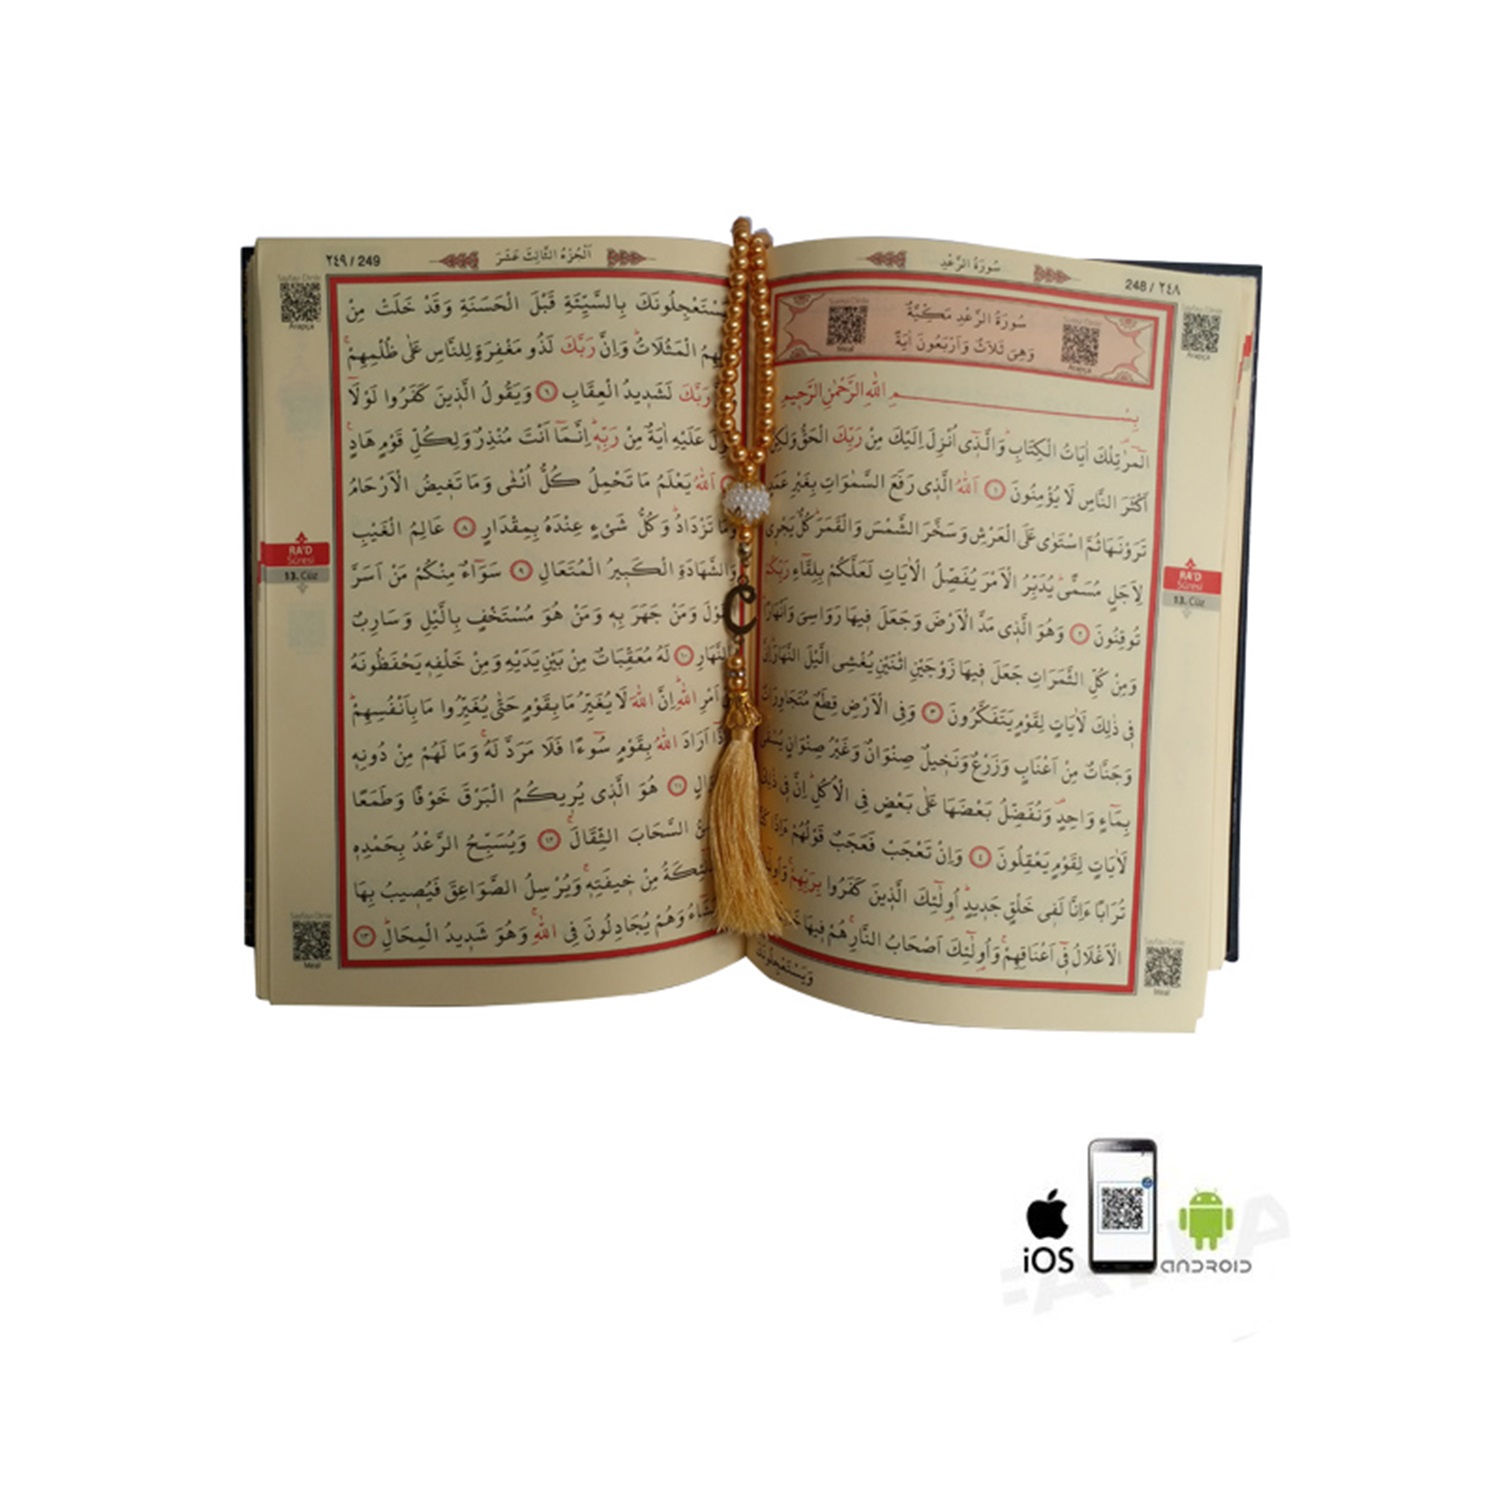 سُورَةُ الرَّعْدِ
248 / ٢٤٨
Sayfayı Dinle
Arapça
سُورَةُ الرَّعْدِ مَكِّيَّةٌ
وَهِىَ ثَلَاثٌ وَاَرْبَعُونَ اٰيَةً
Meal
Arapça
بِسْمِ اللّٰهِ الرَّحْمٰنِ الرَّحِيمِ
الٓمٓرٰ تِلْكَ اٰيَاتُ الْكِتَابِۜ وَالَّذٖٓى اُنْزِلَ اِلَيْكَ مِنْ رَبِّكَ الْحَقُّ وَلٰكِنَّ
اَكْثَرَ النَّاسِ لَا يُؤْمِنُونَ ١ اَللّٰهُ الَّذٖى رَفَعَ السَّمٰوَاتِ بِغَيْرِ عَمَدٍ
تَرَوْنَهَا ثُمَّ اسْتَوٰى عَلَى الْعَرْشِ وَسَخَّرَ الشَّمْسَ وَالْقَمَرَۜ كُلٌّ يَجْرٖى
لِاَجَلٍ مُسَمًّىۜ يُدَبِّرُ الْاَمْرَ يُفَصِّلُ الْاٰيَاتِ لَعَلَّكُمْ بِلِقَٓاءِ رَبِّكُمْ
تُوقِنُونَ ٢ وَهُوَ الَّذٖى مَدَّ الْاَرْضَ وَجَعَلَ فٖيهَا رَوَاسِىَ وَاَنْهَارًاۜ
وَمِنْ كُلِّ الثَّمَرَاتِ جَعَلَ فٖيهَا زَوْجَيْنِ اثْنَيْنِ يُغْشِى الَّيْلَ النَّهَارَۜ اِنَّ
فٖى ذٰلِكَ لَاٰيَاتٍ لِقَوْمٍ يَتَفَكَّرُونَ ٣ وَفِى الْاَرْضِ قِطَعٌ مُتَجَاوِرَاتٌ
وَجَنَّاتٌ مِنْ اَعْنَابٍ وَزَرْعٌ وَنَخٖيلٌ صِنْوَانٌ وَغَيْرُ صِنْوَانٍ يُسْقٰى
بِمَٓاءٍ وَاحِدٍ وَنُفَضِّلُ بَعْضَهَا عَلٰى بَعْضٍ فِى الْاُكُلِۜ اِنَّ فٖى ذٰلِكَ
لَاٰيَاتٍ لِقَوْمٍ يَعْقِلُونَ ٤ وَاِنْ تَعْجَبْ فَعَجَبٌ قَوْلُهُمْ ءَاِذَا كُنَّا
تُرَابًا ءَاِنَّا لَفٖى خَلْقٍ جَدٖيدٍۜ اُولٰٓئِكَ الَّذٖينَ كَفَرُوا بِرَبِّهِمْۚ وَاُولٰٓئِكَ
الْاَغْلَالُ فٖٓى اَعْنَاقِهِمْۚ وَاُولٰٓئِكَ اَصْحَابُ النَّارِۚ هُمْ فٖيهَا
وَيَسْتَعْجِلُونَكَ
RA'D
Sûresi
13. Cüz
Sayfayı Dinle
Meal
اَلْجُزْءُ الثَّالِثَ عَشَرَ
٢٤٩ / 249
Sayfayı Dinle
Arapça
يَسْتَعْجِلُونَكَ بِالسَّيِّئَةِ قَبْلَ الْحَسَنَةِ وَقَدْ خَلَتْ مِنْ
قَبْلِهِمُ الْمَثُلَاتُۜ وَاِنَّ رَبَّكَ لَذُو مَغْفِرَةٍ لِلنَّاسِ عَلٰى ظُلْمِهِمْۚ
رَبَّكَ لَشَدٖيدُ الْعِقَابِ ٦ وَيَقُولُ الَّذٖينَ كَفَرُوا لَوْلَٓا
اُنْزِلَ عَلَيْهِ اٰيَةٌ مِنْ رَبِّهٖۜ اِنَّمَٓا اَنْتَ مُنْذِرٌ وَلِكُلِّ قَوْمٍ هَادٍ
اَللّٰهُ يَعْلَمُ مَا تَحْمِلُ كُلُّ اُنْثٰى وَمَا تَغٖيضُ الْاَرْحَامُ
وَمَا تَزْدَادُۜ وَكُلُّ شَىْءٍ عِنْدَهُ بِمِقْدَارٍ ٨ عَالِمُ الْغَيْبِ
وَالشَّهَادَةِ الْكَبٖيرُ الْمُتَعَالِ ٩ سَوَٓاءٌ مِنْكُمْ مَنْ اَسَرَّ
الْقَوْلَ وَمَنْ جَهَرَ بِهٖ وَمَنْ هُوَ مُسْتَخْفٍ بِالَّيْلِ وَسَارِبٌ
بِالنَّهَارِ ١٠ لَهُ مُعَقِّبَاتٌ مِنْ بَيْنِ يَدَيْهِ وَمِنْ خَلْفِهٖ يَحْفَظُونَهُ
مِنْ اَمْرِ اللّٰهِۜ اِنَّ اللّٰهَ لَا يُغَيِّرُ مَا بِقَوْمٍ حَتّٰى يُغَيِّرُوا مَا بِاَنْفُسِهِمْۜ
وَاِذَٓا اَرَادَ اللّٰهُ بِقَوْمٍ سُٓوءًا فَلَا مَرَدَّ لَهُۚ وَمَا لَهُمْ مِنْ دُونِهٖ
وَالٍ ١١ هُوَ الَّذٖى يُرٖيكُمُ الْبَرْقَ خَوْفًا وَطَمَعًا
السَّحَابَ الثِّقَالَۚ ١٢ وَيُسَبِّحُ الرَّعْدُ بِحَمْدِهٖ
وَالْمَلٰٓئِكَةُ مِنْ خٖيفَتِهٖۚ وَيُرْسِلُ الصَّوَاعِقَ فَيُصٖيبُ بِهَا
يَشَٓاءُ وَهُمْ يُجَادِلُونَ فِى اللّٰهِۚ وَهُوَ شَدٖيدُ الْمِحَالِۜ ١٣
RA'D
Sûresi
13. Cüz
Sayfayı Dinle
Meal
iOS
ANDROID